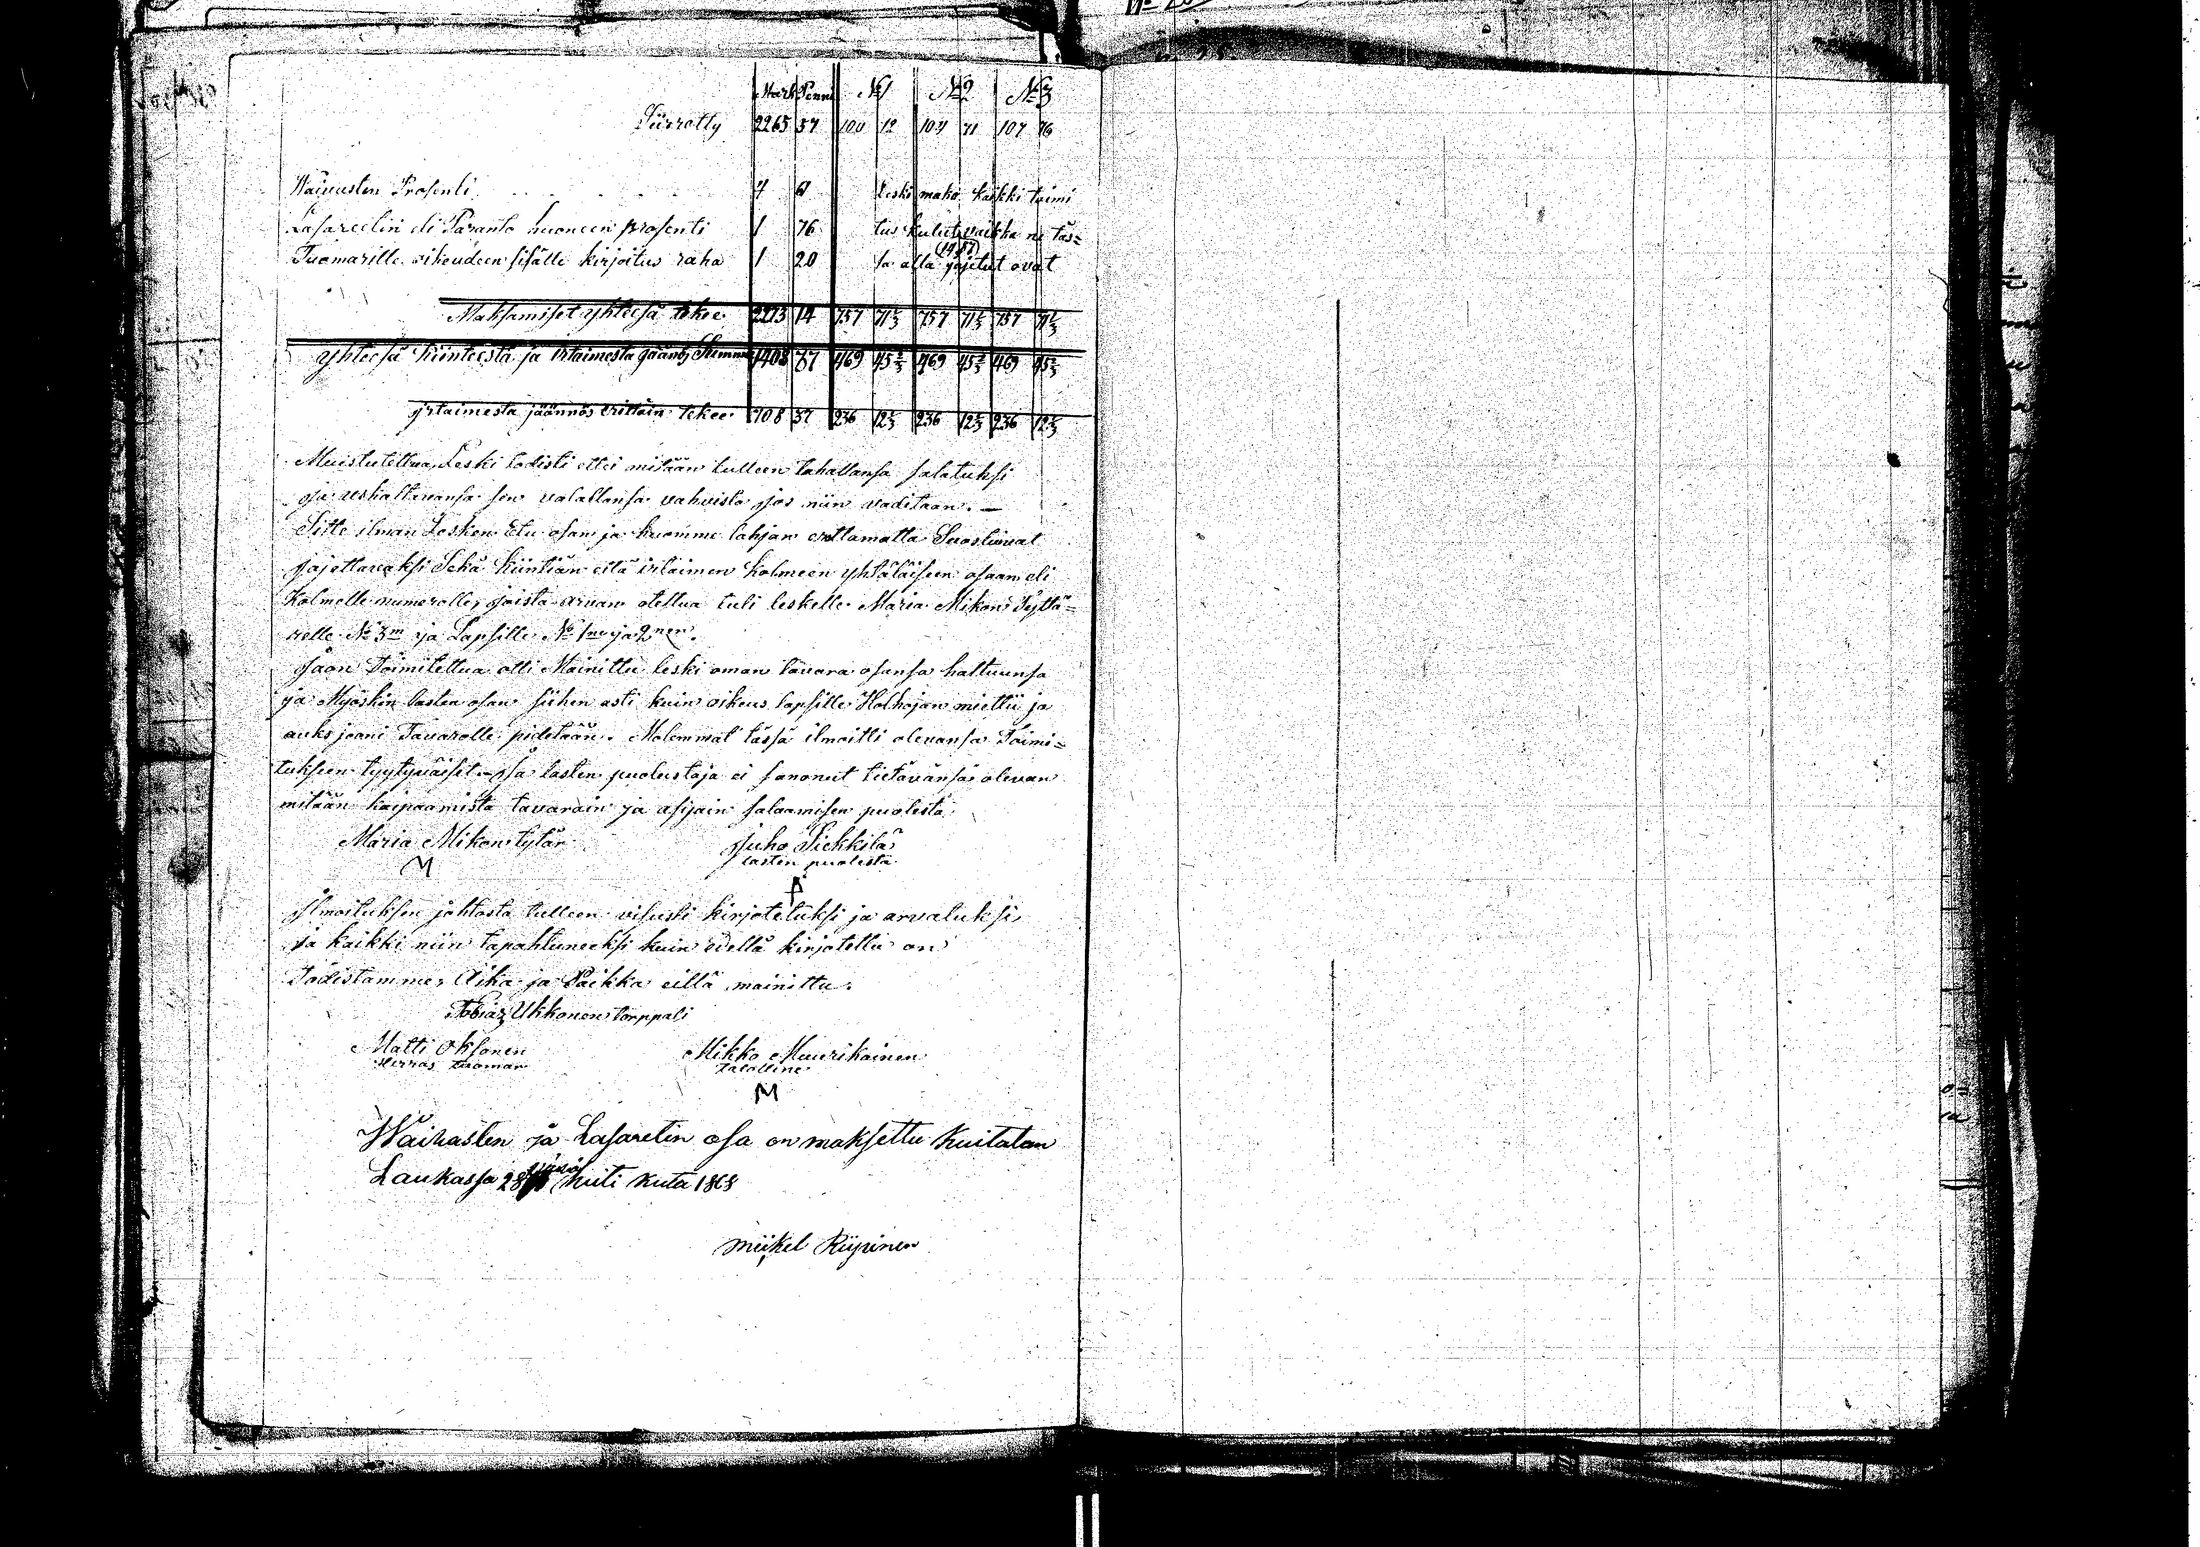 Mark Penni № 1 № 2 № 3
Siirretty 2265 37 100 12 104 71 107 76
Waivasten Prosenti 4 61 Leski mako kaikki toimi
Lasareetin eli Paranto huoneen prosenti 1 76 tus kulut vaikka ne täs=
Tuomarille oikeudeen sisälle kirjoitus raha 1 20 sa alla jajetut ovat
Maksamiset yhteesä tekee 2273 14 757 71 1/3 757 71 1/3 757 71 1/3
Yhteesä kiinteestä ja irtaimesta jäänty Summa 1408 37 469 45 2/3 469 45 2/3 469 45 2/3
irtaimesta jäännös erittäin tekee 708 37 236 12 1/3 236 12 1/3 236 12 1/3
Muistutettua, Leski todisti ettei mitään tulleen tahallansa salatuksi
ja uskaltavansa sen valallansa vahvista jos niin vaditaan. —
Sitte ilman Lesken Etu osan ja huomme lahjan erottamatta Suostuivat
jajettavaksi Sekä kiintiän että irtaimen kolmeen yhtäläiseen osaan eli
kolmelle numerolle, joista arvan otettua tuli leskelle Maria Mikon Tyttä=
relle № 3m ja Lapsille № 1ne ja 2nen.
Jaon Toimitettua otti Mainittu leski oman tavara osansa haltuunsa
ja Myöskin lasten osan siihen asti kuin oikeus lapsille Holhojan miettii ja
auksjooni Tavarolle pidetään. Molemmat tässä ilmoitti olevansa Toimi=
tukseen tyytyväiset ja lasten puolustaja ei sanonut tietävänsä olevan
mitään kaipaamista tavarain ja asijain salaamisen puolesta
Maria Mikontytär Juho Piekkilä
M lasten puolesta
Ilmoituksen johtosta tulleen visusti kirjotetuksi ja arvatuksi,
ja kaikki niin tapahtuneeksi kuin edellä kirjotettu on
Todistamme, Aika ja Paikka eillä mainittu.
Tobias Ukkonen torppali
Matti Oksanen Mikko Muurikainen
Herras tuomar Talolline
M
Wäivasten ja Lasaretin osa on maksettu Kuitatan
Laukassa 28 huti kuta 1868
Miikel Riipinen